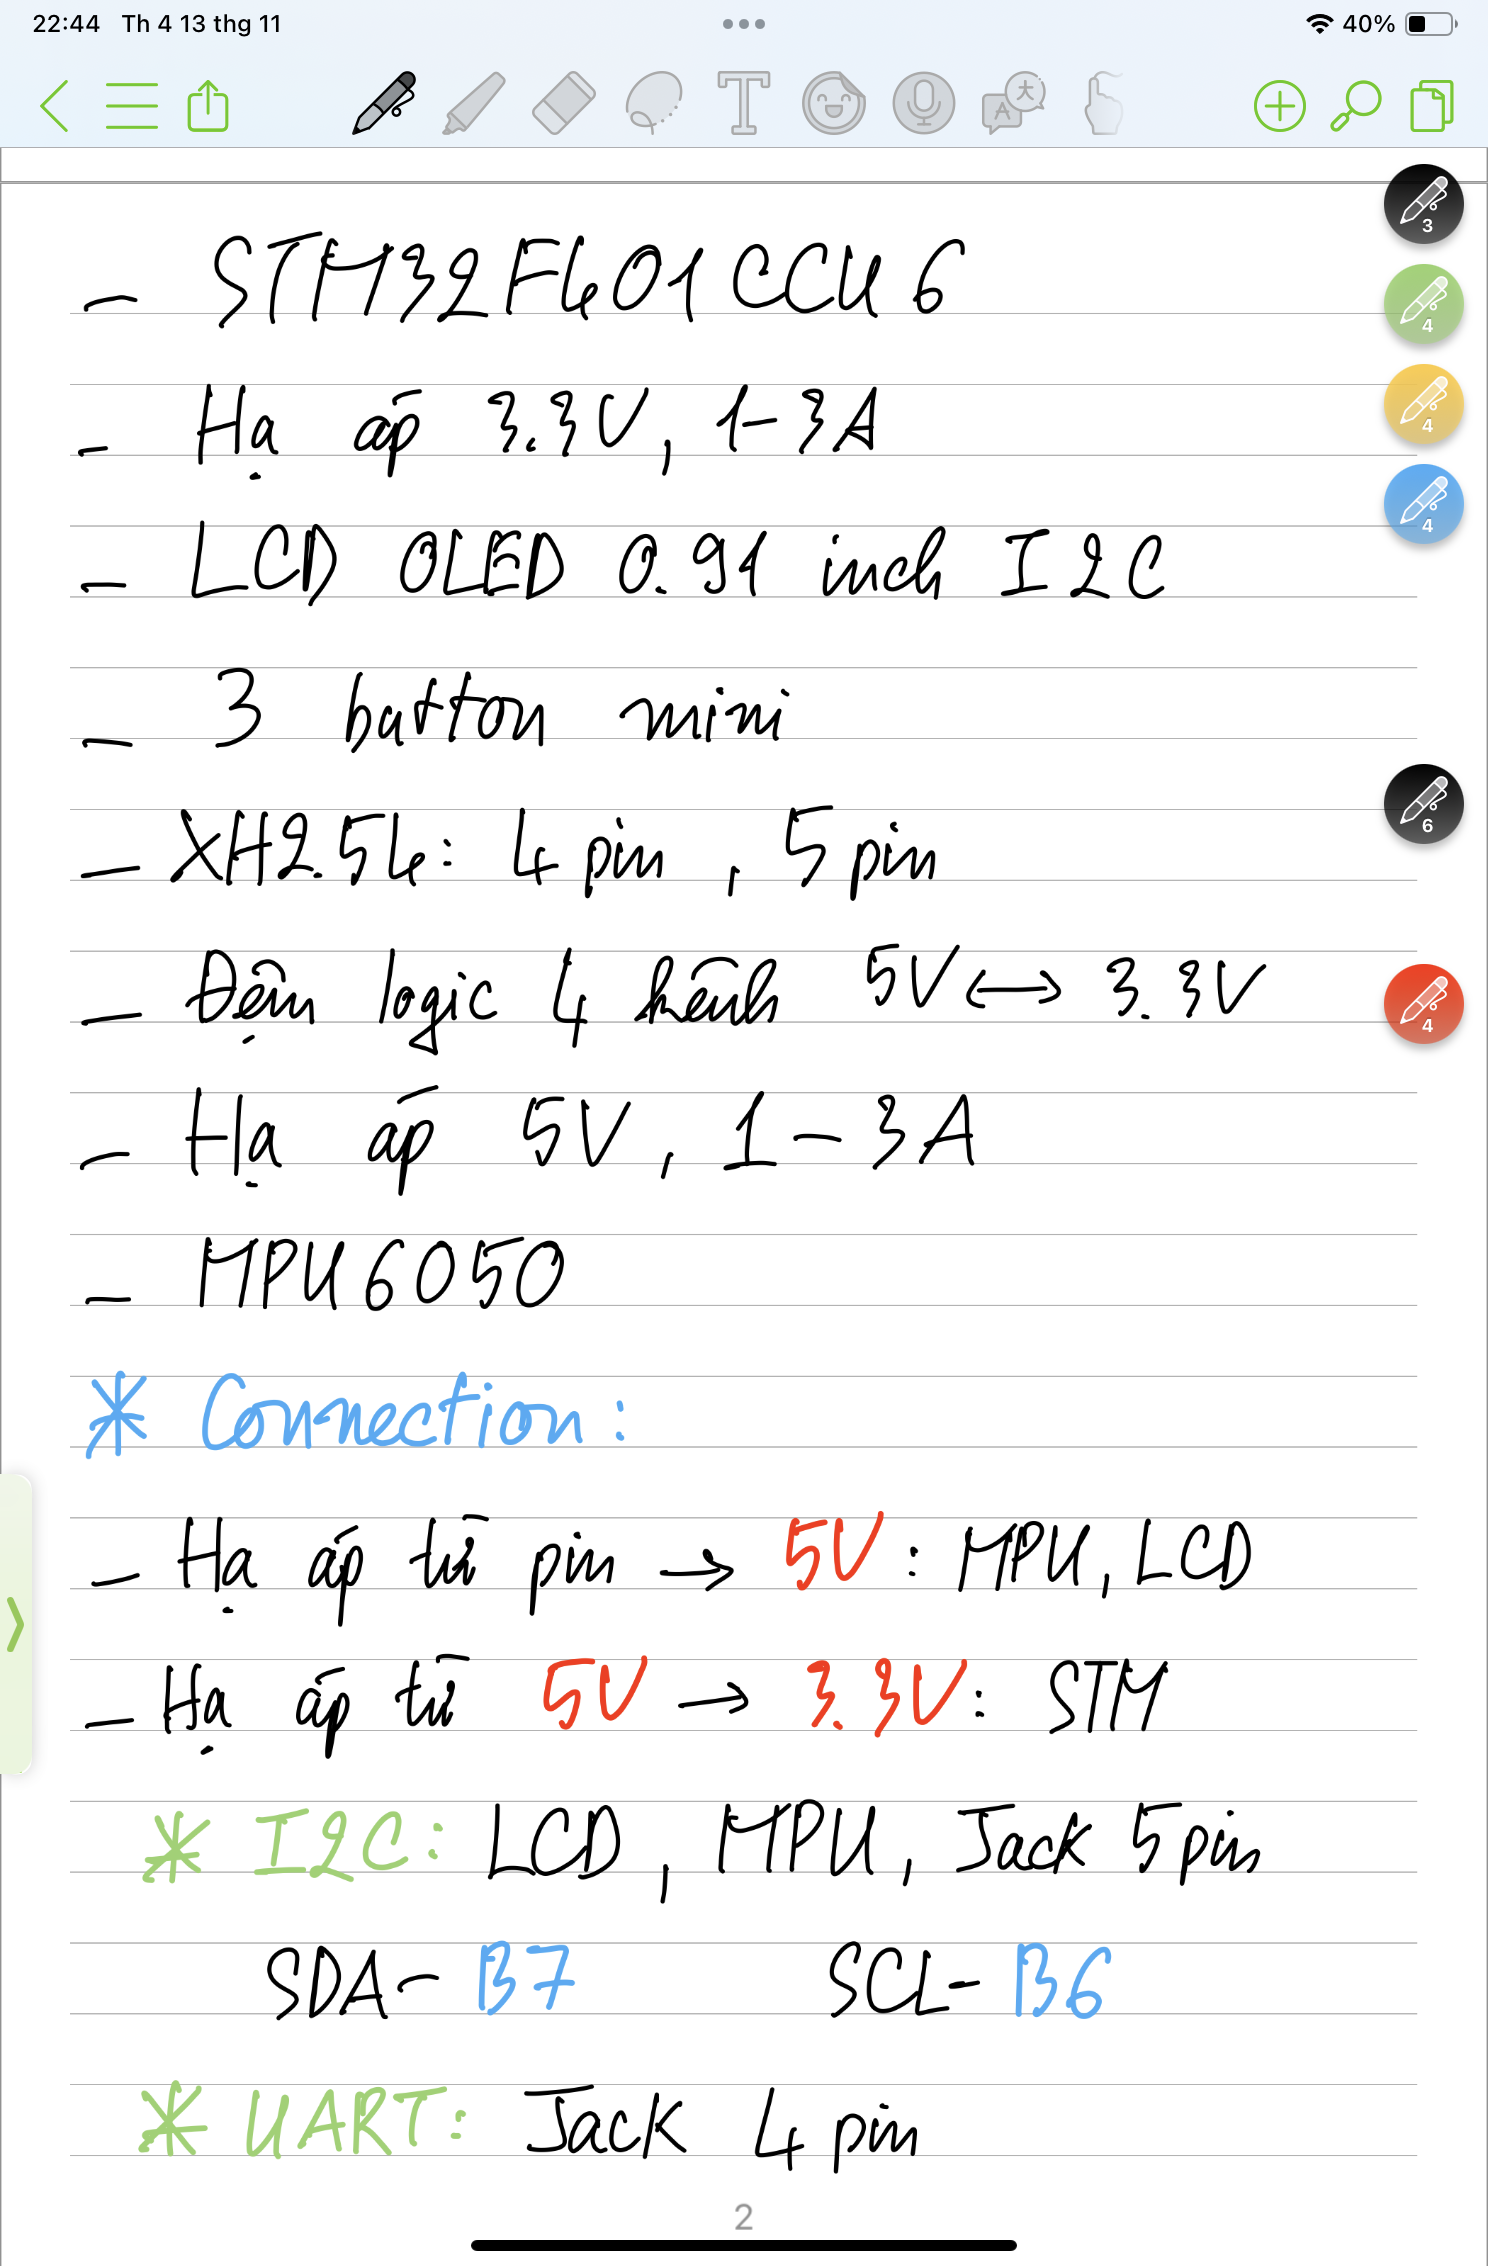 22:44 Th 4 13 thg 11 40%
3
- STM32F401CCU6
4
- Hạ áp 3.3V, 1-3A
4
- LCD OLED 0.91 inch I2C
4
- 3 button mini
6
- XH2.54: 4 pin, 5 pin
- Đệm logic 4 kênh 5V ↔ 3.3V
4
- Hạ áp 5V, 1-3A
- MPU6050
* Connection:
- Hạ áp từ pin → 5V: MPU, LCD
- Hạ áp từ 5V → 3.3V: STM
* I2C: LCD, MPU, Jack 5 pin
SDA - B7 SCL - B6
* UART: Jack 4 pin
2